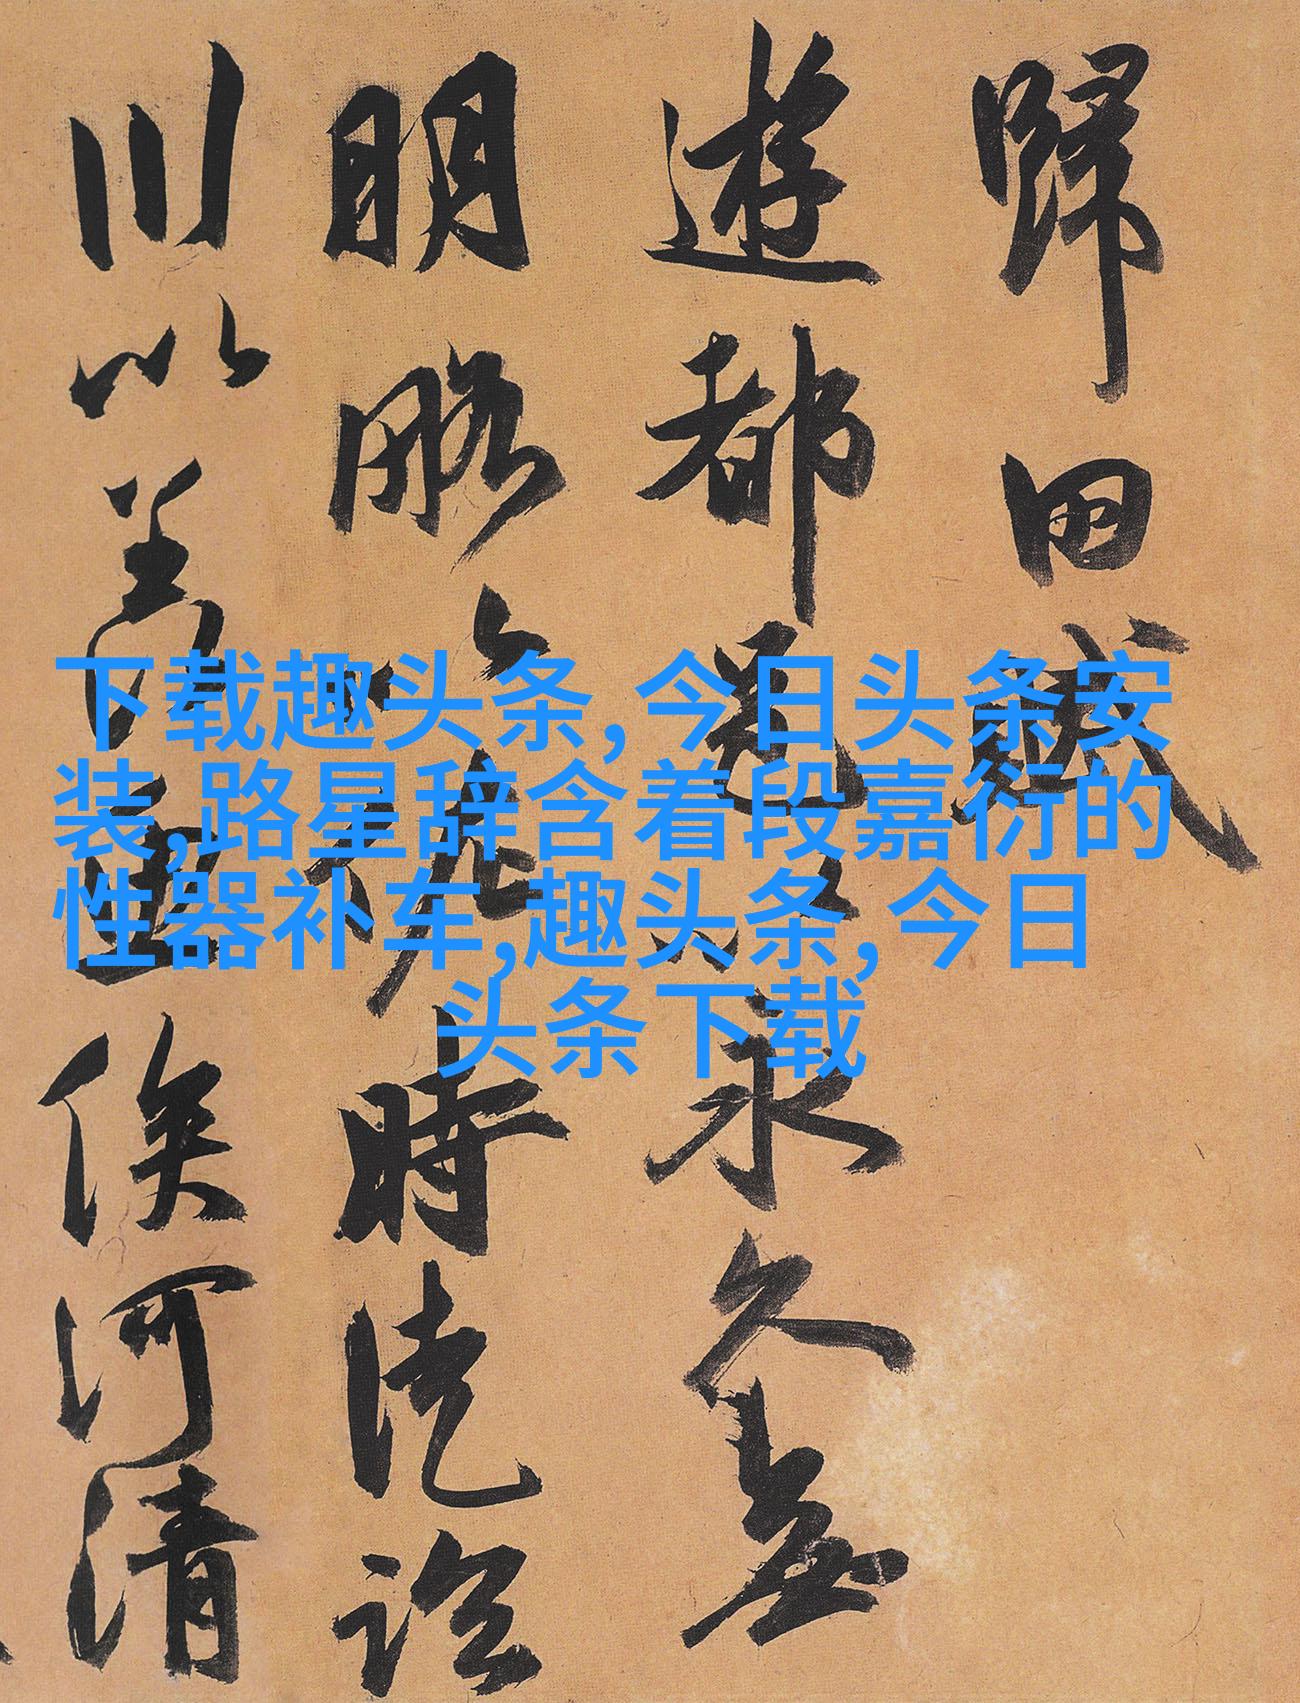 歸田賦
遊都邑以永久無
明略以佐時徒臨
川以羨魚俟河清
下载趣头条,今日头条安
装,路星辞含着段嘉衍的
性器补车,趣头条,今日
头条下载